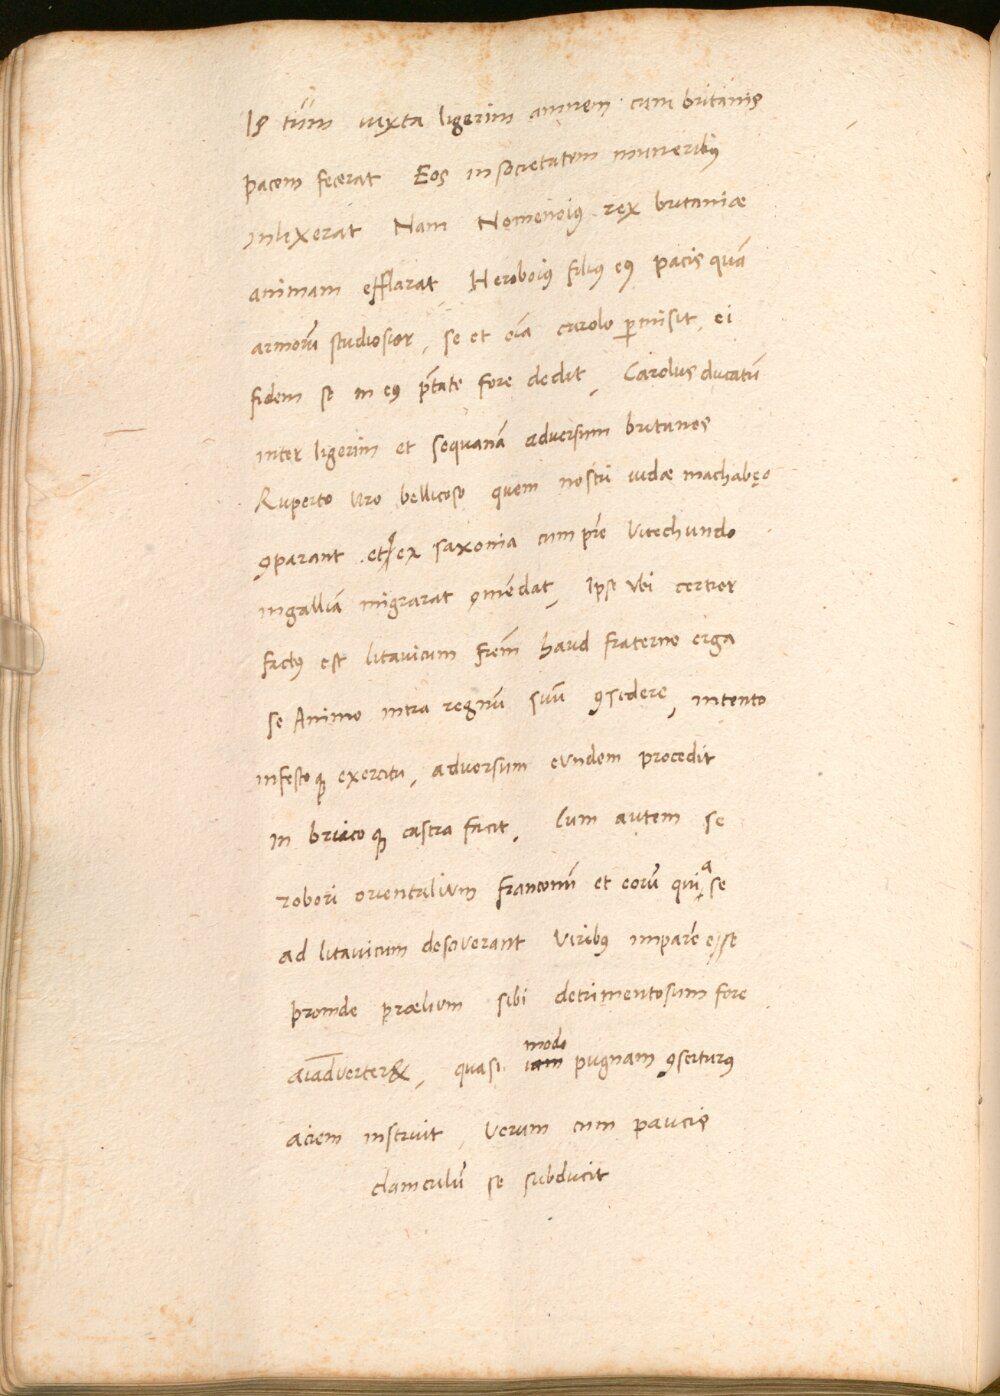 Is tũm iuxta ligerim amnem cum britanis
pacem fecerat Eos in societatem muneribꝰ
inlexerat Nam Nomenoiꝰ rex britaniæ
animam efflarat, Heroboiꝰ filiꝰ eꝰ pacis quā
armorū studiosior, se et oīa carolo ꝑmisit, ei
fidem se in eꝰ ptāte fore dedit, Carolus ducatū
inter ligerim et sequanā adversum britanos
Ruperto viro bellicoso quem nostri iudæ machabęo
ꝯparant et ex saxonia cum pr̄e Vitechundo
in galliā migrarat ꝯmēdat, Ipse vbi certior
factꝰ est litavicum fr̄em haud fraterno erga
se Animo intra regnū suū ꝯsidere, intento
infestoqꝫ exercitu, adversum eundem procedit
in briacoqꝫ castra facit, Cum autem se
robori orientalium franconū et eorū qui a se
ad litavicum desciverant viribꝰ imparē esse
proinde prælium sibi detrimentosum fore
aīadverter&, quasi modo pugnam ꝯserturꝰ
aciem instruit, Verum cum paucis
clamculū se subducit